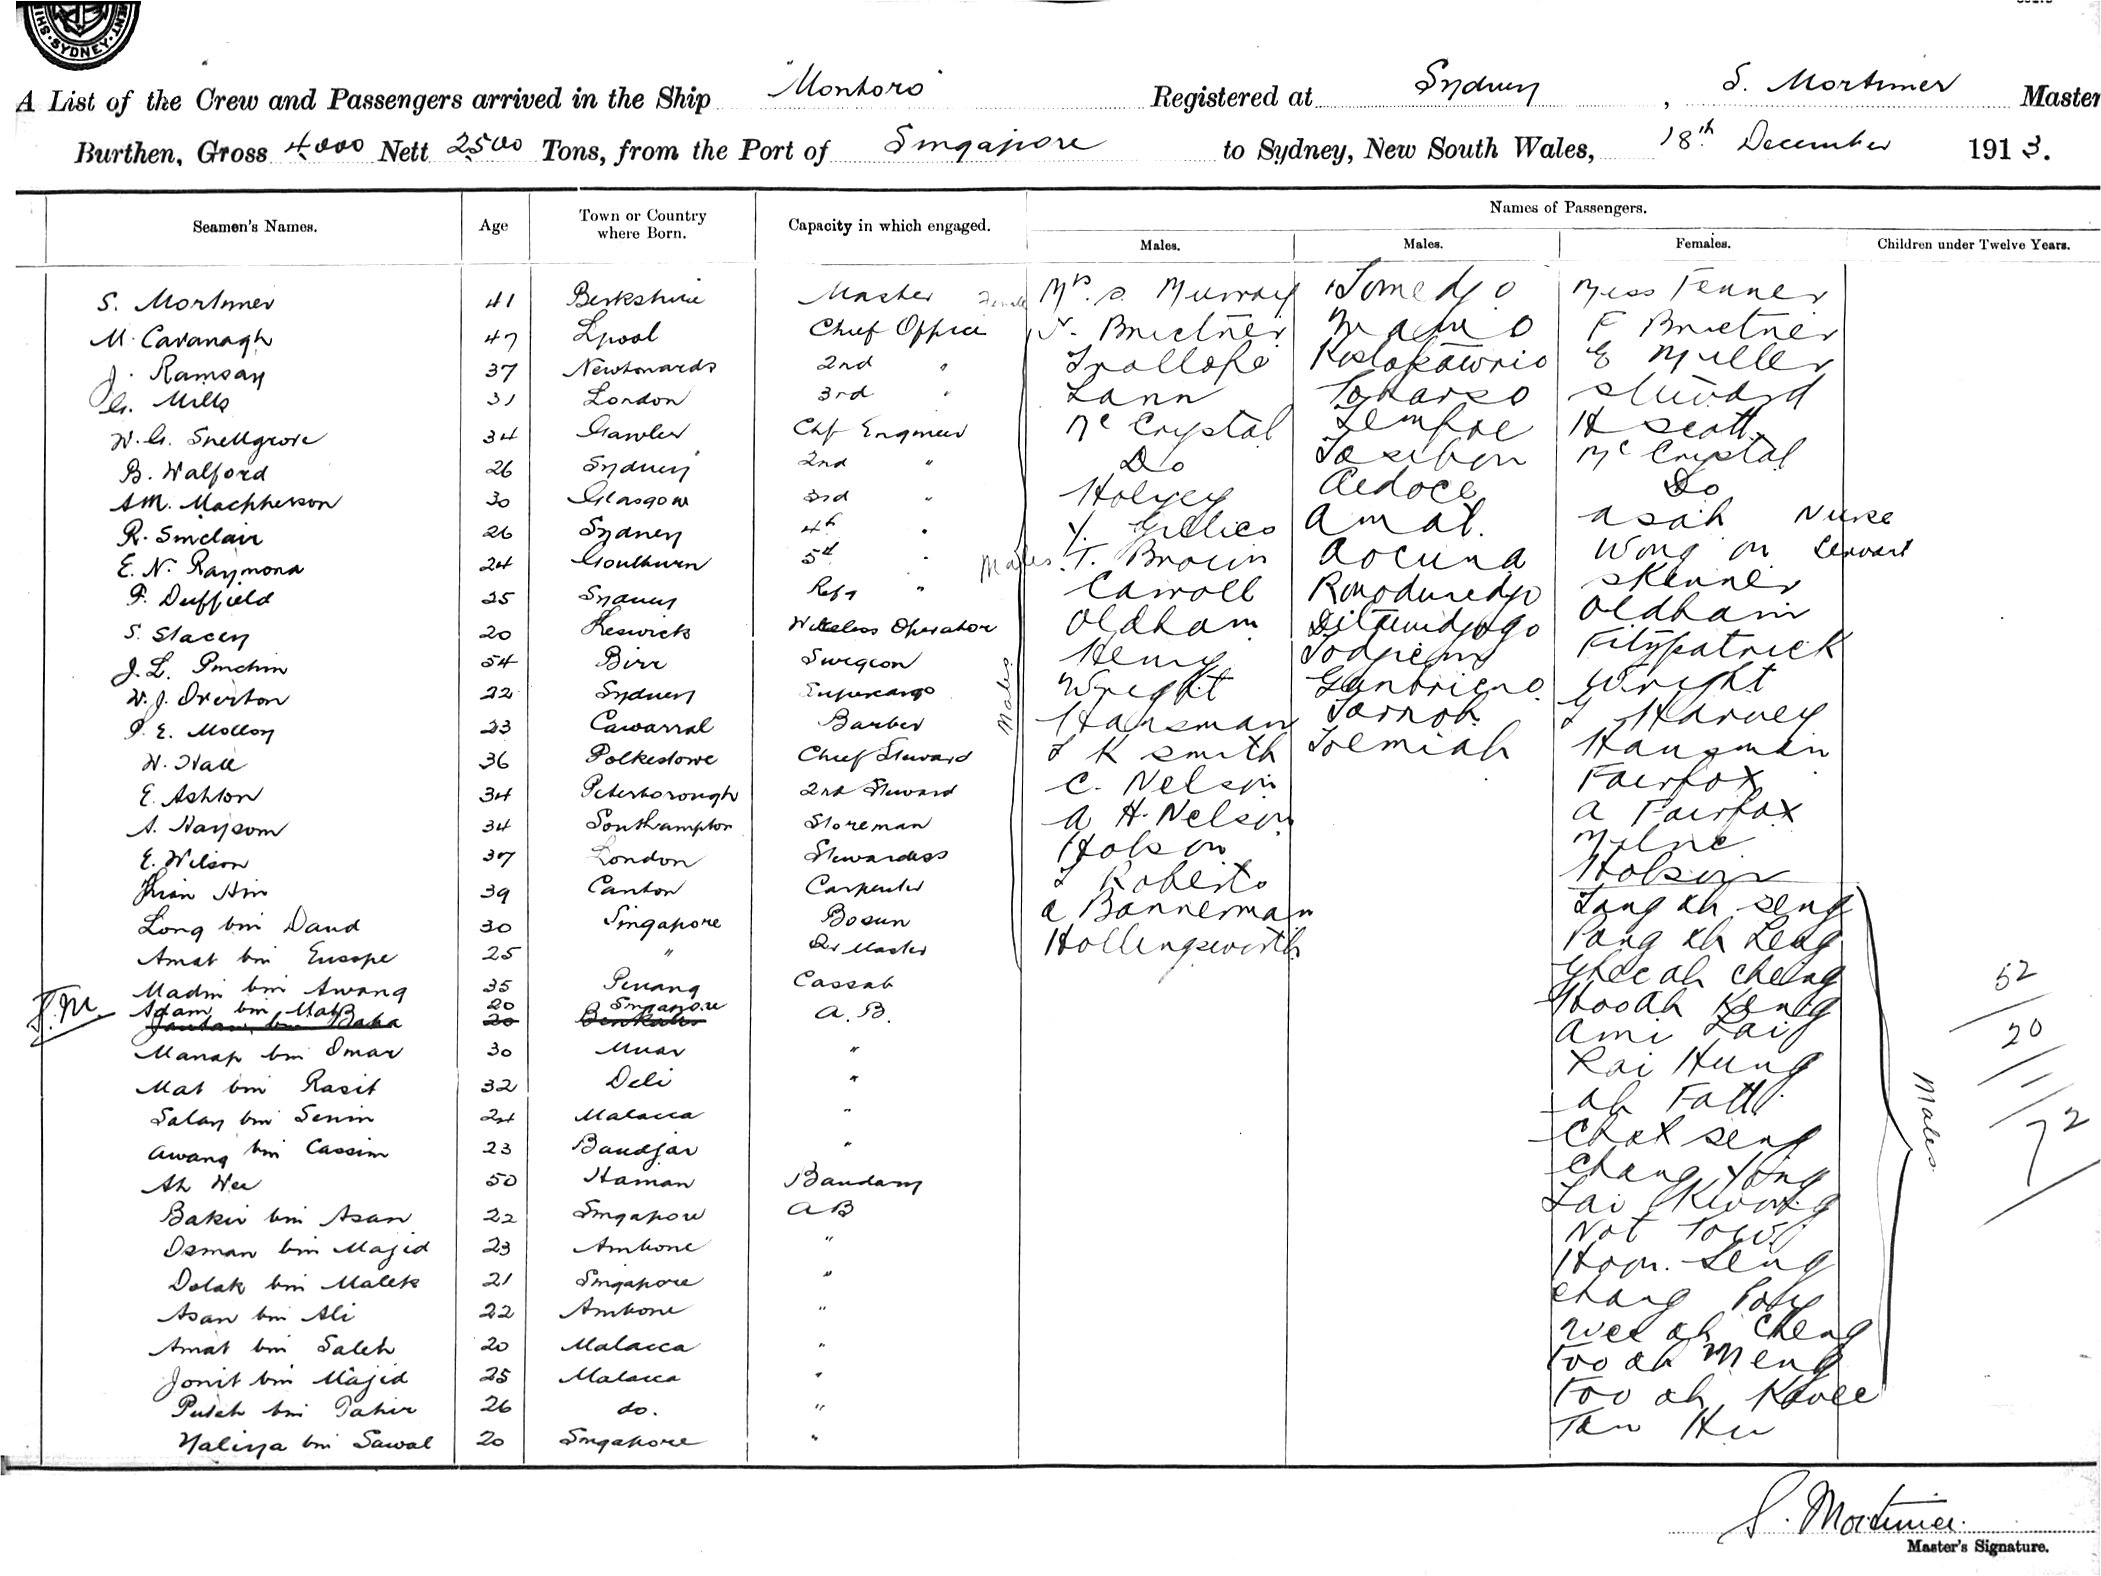 SYDNEY
A List of the Crew and Passengers arrived in the Ship "Montoro" Registered at Sydney, S. Mortimer Master
Burthen, Gross 4000 Nett 2500 Tons, from the Port of Singapore to Sydney, New South Wales, 18th December 1913.
Names of Passengers.
Seamen's Names. Age Town or Country where Born. Capacity in which engaged. Males. Males. Females. Children under Twelve Years.
S. Mortimer 41 Berkshire Master Female Mrs. S. Murray Somedjo Miss Fenner
M. Cavanagh 47 Lpool Chief Office Brietner F Brietner
J. Ramsay 37 Newtonards 2nd " Trollope E Miller
G. Mills 31 London 3rd " Lann Steward
W. G. Snellgrove 34 Gawler Chf Engineer Mc Crystal H Scott
B. Walford 26 Sydney 2nd " Do Mc Crystal
A.M. Macpherson 30 Glasgow 3rd " Do
R. Sinclair 26 Sydney 4th " Amat. Asah Nurse
E. N. Raymond 24 Goulburn 5th " Males. T. Brown Wong on Servant
F. Duffield 25 Sydney Refg " Carroll Skinner
S. Stacey 20 Keswick Wireless Operator Oldham Oldham
J. L. Pinchin 54 Birr Surgeon Males Henry Fitzpatrick
W. J. Overton 22 Sydney Supercargo Wright Wright
P. E. Molloy 23 Cawarral Barber Hansman Harvey
W. Hall 36 Folkestowe Chief Steward K Smith Toemiah Hausman
E. Ashton 34 Peterborough 2nd Steward C. Nelson Fairfax
A. Haysom 34 Southampton Storeman A H. Nelson A Fairfax
E. Wilson 37 London Stewardess Hobson Milne
39 Canton Carpenter Roberts Hobson
Long bin Daud 30 Singapore Bosun A Bannerman Tang Ah Seng
Amat bin Eusope 25 " Qr Master Hollingsworth Pang Ah Leng
Madin bin Awang 35 Penang Cassab Ghee Ah Cheing
S.M. Adam bin Mat 20 Singapore A. B. Hooah Keng
Jantan bin Baba 20 Benkalis Ami Lai
Manap bin Omar 30 Muar " Kai Hung
Mat bin Rasit 32 Deli " Ah Fatt
Salay bin Senin 24 Malacca " Chat Seng
Awang bin Cassim 23 Bandjar " Chang Ying
Ah Wee 50 Haman Bandary Lai Kwong
Bakir bin Asan 22 Singapore AB Not
Osman bin Majid 23 Ambone " Hop. Seng
Dolak bin Malek 21 Singapore " Chang Poly
Asan bin Ali 22 Ambone " Wee Ah Cheng
Amat bin Saleh 20 Malacca " Foo Ah Meng
Jonit bin Majid 25 Malacca " Foo Ah Kwee
Puteh bin Tahir 26 do. " Tan Hu
Naliya bin Sawal 20 Singapore "
Males
52
20
1
72
S. Mortimer.
Master's Signature.